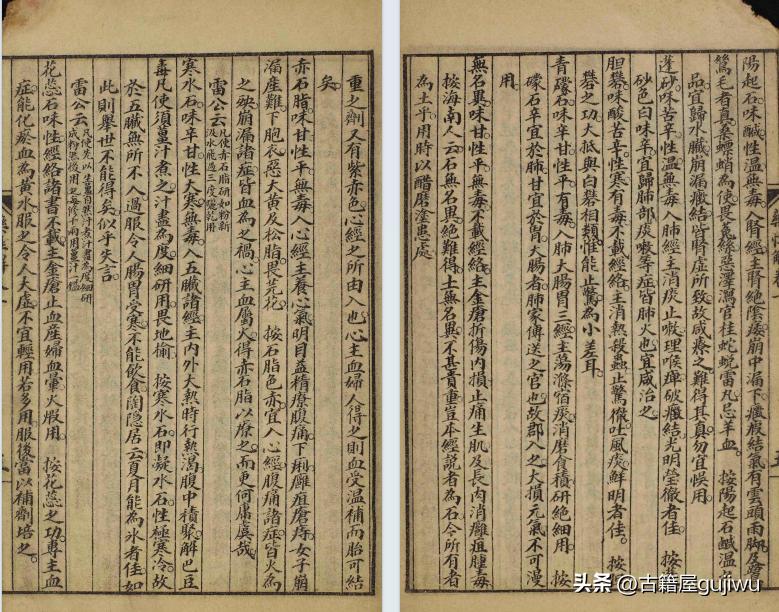 陽起石味鹹性溫無毒入腎經主腎絕陰痿崩中漏下癥瘕結氣有雲頭雨脚及鷺
鷥毛者真桑螵蛸為使畏菟絲惡澤瀉官桂蛇蛻雷丸忌羊血　按陽起石鹹溫
品宜歸水臟崩漏癥結皆腎虛所致故咸療之難得其真勿宜悮用
蓬砂味苦辛性溫無毒入肺經主消痰止嗽理喉痺破癥結光明瑩徹者佳　按
砂色白味辛宜歸肺部痰嗽等症皆肺火也宜咸治之
胆礬味酸苦辛性寒有毒不載經絡主消熱殺蟲止驚癇吐風痰鮮明者佳　按
礬之功大抵與白礬相類惟能止驚為小差耳
青礞石味辛甘性平有毒入肺大腸胃三經主蕩滌宿痰消磨食積研絕細用　按
礞石辛宜於肺甘宜於胃大腸者肺家傳送之官也故郡入之大損元氣不可漫
用
無名異味甘性平無毒不載經絡主金瘡折傷內損止痛生肌及長肉消癰疽腫毒
按海南人云石無名異絕難得土無名異不甚貴重豈本經說者為石今所有者
為土乎用時以醋磨塗患處
重之劑又有紫赤色心經之所由入也心主血婦人得之則血受溫補而胎可結
矣
赤石脂味甘性平無毒入心經主養心氣明目益精療腹痛下痢癰疽瘡痔女子崩
漏産難下胞衣惡大黃及松脂畏芫花　按石脂色赤宜入心經腹痛諸症皆火為
之殃崩漏諸症皆血為之禍心主血屬火得赤石脂以療之而更何庸虞哉
雷公云凡使赤石脂研如粉新
汲水飛過三度晒乾用
寒水石味辛甘性大寒無毒入五臟諸經主內外大熱時行熱渴腹中積聚解巴豆
毒凡使須薑汁煮之汁盡為度細研用畏地榆　按寒水石即凝水石性極寒冷故
於五臟無所不入過服令人腸胃受寒不能飲食陶隱居云夏月能為氷者佳如
此則舉世不能得矣似乎失言
雷公云凡使先以生薑自然汁煮汁盡為度細研
成粉然後用之每修十兩用薑汁一鎰
花蕊石味性經絡諸書不載主金瘡止血産婦血暈火煅用　按花蕊之功專主血
症能化瘀血為黃水服之令人大虛不宜輕用若多用服後當以補劑培之
头条 @古籍屋gujiwu